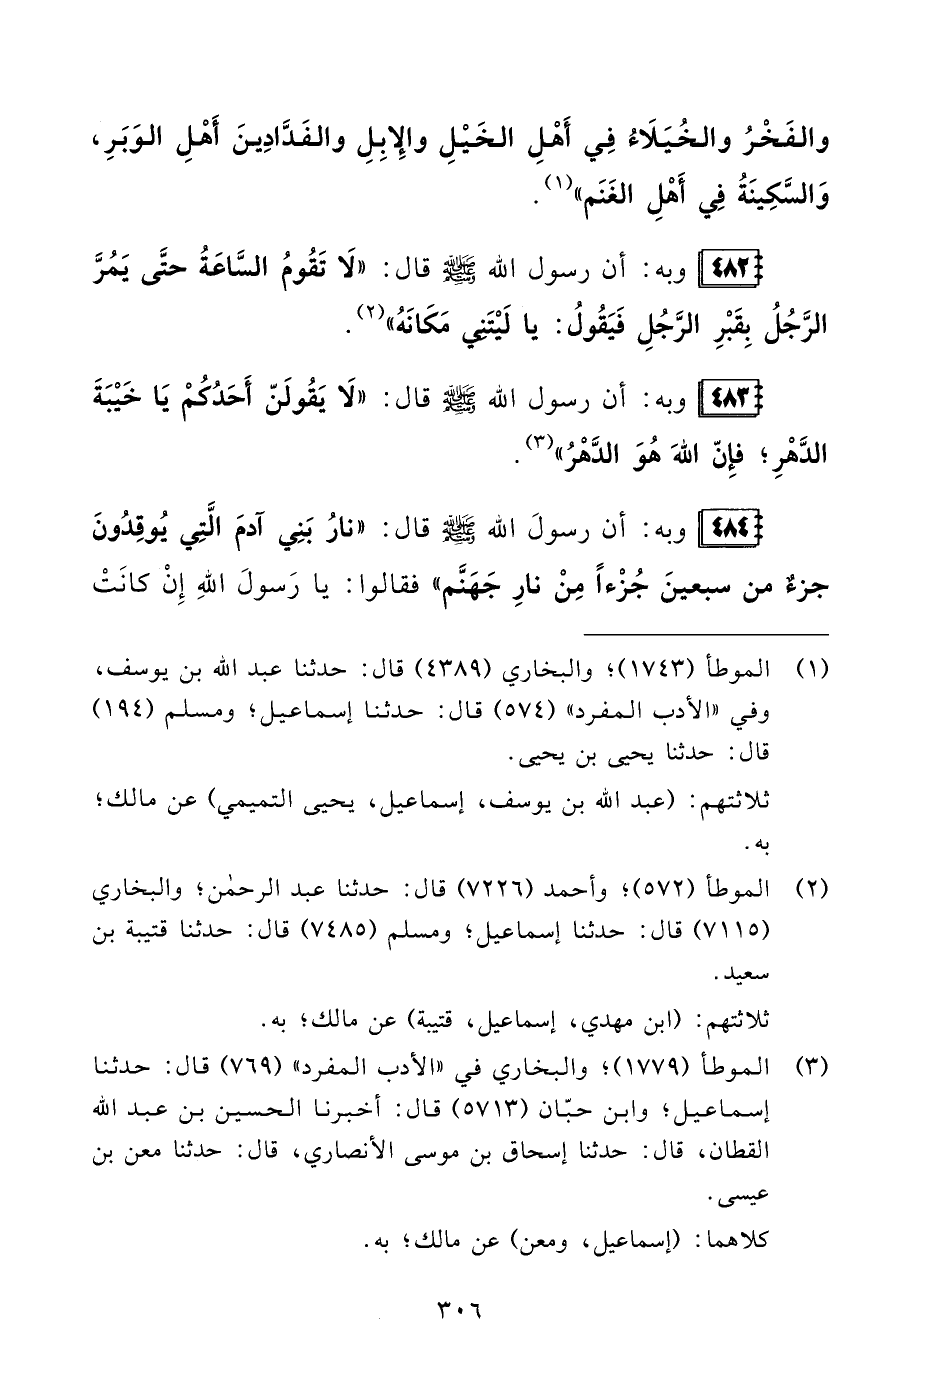 والفَخْرُ والخُيَلَاءُ فِي أَهْلِ الخَيْلِ والإِبِلِ والفَدَّادِينَ أَهْلِ الوَبَرِ،
وَالسَّكِينَةُ فِي أَهْلِ الغَنَمِ»(١).
٤٨٢ وبه: أن رسول الله ﷺ قال: «لَا تَقُومُ السَّاعَةُ حتَّى يَمُرَّ
الرَّجُلُ بِقَبْرِ الرَّجُلِ فَيَقُولُ: يا لَيْتَنِي مَكَانَهُ»(٢).
٤٨٣ وبه: أن رسول الله ﷺ قال: «لَا يَقُولَنّ أَحَدُكُمْ يَا خَيْبَةَ
الدَّهْرِ؛ فإِنّ اللهَ هُوَ الدَّهْرُ»(٣).
٤٨٤ وبه: أن رسولَ الله ﷺ قال: «نارُ بَنِي آدمَ الَّتِي يُوقِدُونَ
جزءٌ من سبعينَ جُزْءاً مِنْ نارِ جَهَنَّم» فقالوا: يا رَسولَ اللهِ إِنْ كانَتْ
(١) الموطأ (١٧٤٣)؛ والبخاري (٤٣٨٩) قال: حدثنا عبد الله بن يوسف،
وفي «الأدب المفرد» (٥٧٤) قال: حدثنا إسماعيل؛ ومسلم (١٩٤)
قال: حدثنا يحيى بن يحيى.
ثلاثتهم: (عبد الله بن يوسف، إسماعيل، يحيى التميمي) عن مالك؛
به.
(٢) الموطأ (٥٧٢)؛ وأحمد (٧٢٢٦) قال: حدثنا عبد الرحمٰن؛ والبخاري
(٧١١٥) قال: حدثنا إسماعيل؛ ومسلم (٧٤٨٥) قال: حدثنا قتيبة بن
سعيد.
ثلاثتهم: (ابن مهدي، إسماعيل، قتيبة) عن مالك؛ به.
(٣) الموطأ (١٧٧٩)؛ والبخاري في «الأدب المفرد» (٧٦٩) قال: حدثنا
إسماعيل؛ وابن حبّان (٥٧١٣) قال: أخبرنا الحسين بن عبد الله
القطان، قال: حدثنا إسحاق بن موسى الأنصاري، قال: حدثنا معن بن
عيسى.
كلاهما: (إسماعيل، ومعن) عن مالك؛ به.
٣٠٦